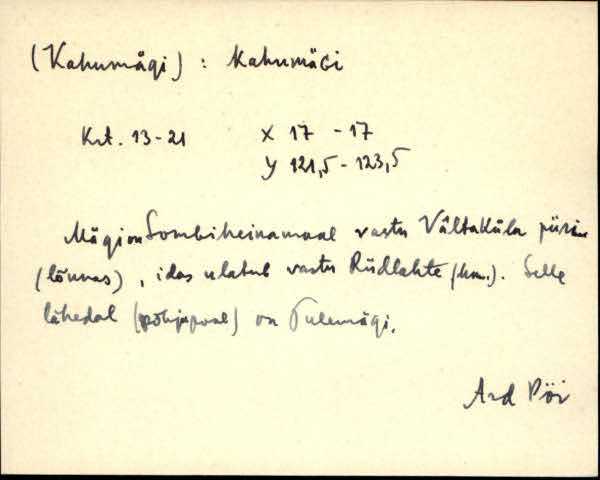 (Kahumägi) : Kahumägi
Krt. 13-21 X 17 - 17
Y 121,5 - 123,5
Mägi on Sombiheinamaal vastu Vältaküla piiri
(lõunas), idas ulatub vastu Rüdlahte (hm.). Selle
lähedal (põhjapool) on Tulemägi.
Ard Pöi